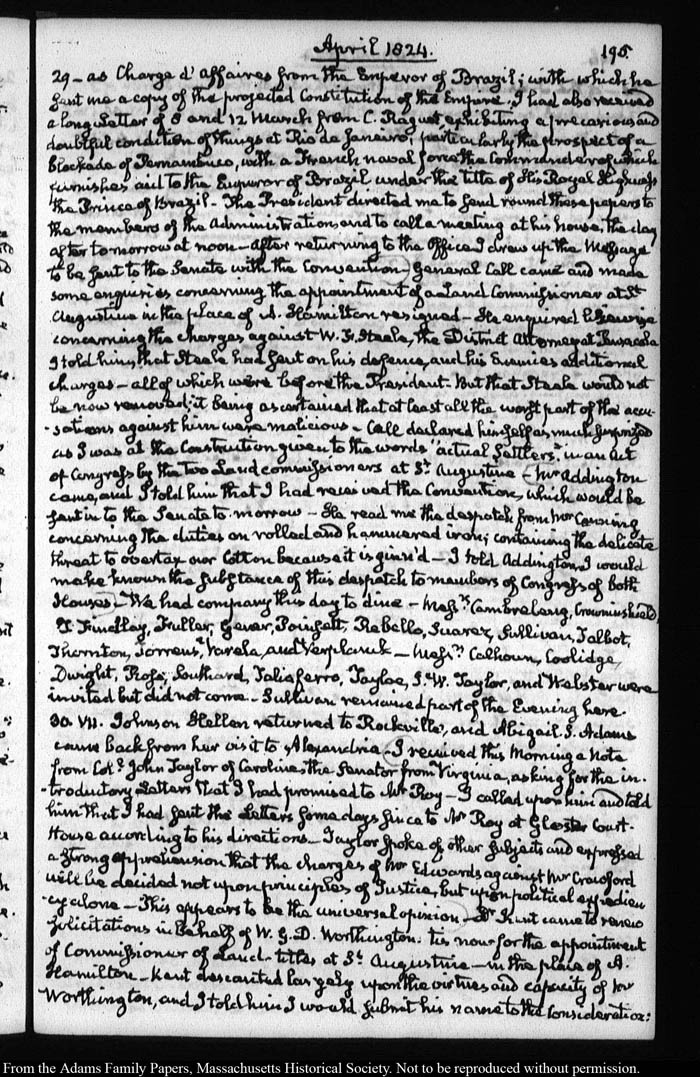 April 1824.
195.
29 - as Chargé d'affaires from the Emperor of Brazil; with which he
sent me a copy of the projected Constitution of the Empire. I had also received
a long Letter of 8 and 12 March from C. Raguet, exhibiting a precarious and
doubtful condition of things at Rio de Janeiro; particularly the prospect of a
blockade of Pernambuco, with a French naval force the Commander of which
furnishes aid to the Emperor of Brazil under the title of His Royal Highness
the Prince of Brazil - The President directed me to send round these papers to
the members of the Administration, and to call a meeting at his house, the day
after tomorrow at noon - after returning to the Office I drew up the Message
to be sent to the Senate with the Convention - General Call came and made
some enquiries concerning the appointment of a Land Commissioner at St.
Augustine in the place of A. Hamilton resigned - He enquired likewise
concerning the charges against W. F. Steele, the District Attorney at Pensacola
I told him, that Steele had sent on his defence, and his Enemies additional
charges - all of which were before the President. But that Steele would not
be now removed; it being ascertained that at least all the worst part of the accu-
-sations against him were malicious - Call declared himself as much surprized
as I was at the Construction given to the words "actual Settlers" in an act
of Congress by the two Land commissioners at St. Augustine - Mr Addington
came, and I told him that I had received the Convention, which would be
sent in to the Senate to-morrow - He read me the despatch from Mr Canning
concerning the duties on rolled and hammered iron; containing the delicate
threat to overtax our Cotton because it is ginn'd - I told Addington, I would
make known the substance of this despatch to members of Congress of both
Houses - We had company this day to dine - Messrs Cambreleng, Crowninshield,
Findlay, Fuller, Poinsett, Rebello, Suarez, Sullivan, Talbot,
Thornton, Torrens, Varela, and Verplanck - Messrs Calhoun, Coolidge,
Dwight, Ross, Southard, Taliaferro, Tayloe, J. W. Taylor, and Webster were
invited but did not come - Sullivan remained part of the Evening here.
30. VII. Johnson Hellen returned to Rockville, and Abigail S. Adams
came back from her visit to Alexandria - I received this Morning a Note
from Coll. John Taylor of Caroline, the Senator from Virginia, asking for the in-
-troductory Letters that I had promised to Mr Roy - I called upon him and told
him that I had sent the Letters some days since to Mr Roy at Gloster Court-
House according to his directions - Taylor spoke of other subjects and expressed
a strong apprehension that the charges of Mr Edwards against Mr Crawford
will be decided not upon principles of Justice, but upon political expedien-
-cy alone - This appears to be the universal opinion - Dr Kent came to renew
solicitations in behalf of W. G. D. Worthington. tis now for the appointment
of Commissioner of Land-titles at St. Augustine - in the place of A.
Hamilton - Kent descanted largely upon the virtues and capacity of Mr
Worthington, and I told him I would submit his name to the consideration:
From the Adams Family Papers, Massachusetts Historical Society. Not to be reproduced without permission.